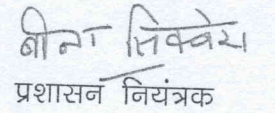 बीना सिक्वेरा
प्रशासन नियंत्रक